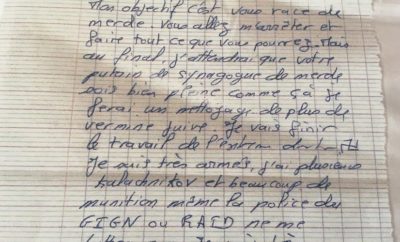 Mon objectif c'est vous race de
merde vous allez m'arrêter et
faire tout ce que vous pourrez. Mais
au final, j'attendrai que votre
putain de synagogue de merde
sois bien pleine comme çà je
ferai un nettoyage de plus de
vermine juive. Je vais finir
le travail de l'entrm
Je suis très armés, j'ai plusieurs
kalachnikov et beaucoup de
munition même la police du
GIGN ou RAID ne me